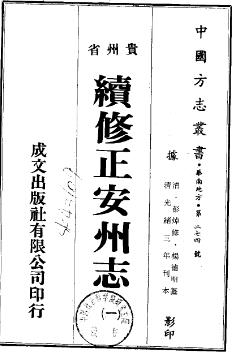 中國方志叢書・華南地方・第二七四號
據
清・彭焯修・楊德明纂
清光緒三年刊本
影印
貴州省
續修正安州志
(一)
成文出版社有限公司印行